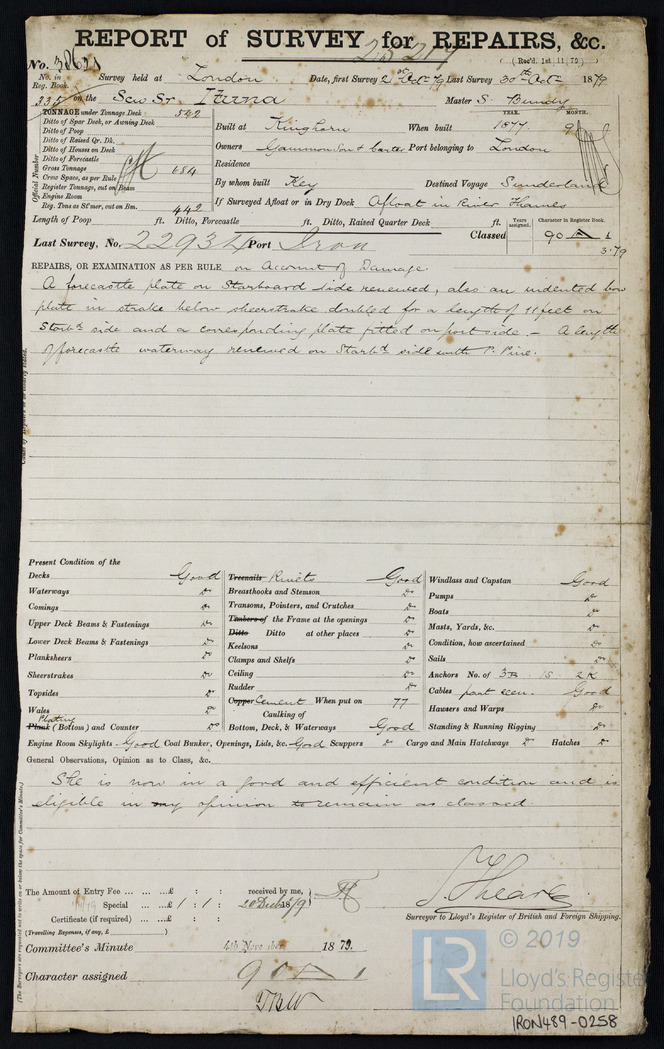 REPORT of SURVEY for REPAIRS, &c.
(Rec'd. 1st 11 79)
No.
No. in Reg. Book. Survey held at London Date, first Survey 2nd Octr 79 Last Survey 30th Octr 1879
on the Scw Sr Ituna Master S. Bundy
TONNAGE under Tonnage Deck 542
Ditto of Spar Deck, or Awning Deck
Ditto of Poop
Ditto of Raised Qr. Dk.
Ditto of Houses on Deck
Ditto of Forecastle
Gross Tonnage 684
Crew Space, as per Rule
Register Tonnage, cut on Beam
Engine Room
Reg. Tons as St'mer, cut on Bm. 442
Official Number
Built at Kinghorn When built YEAR. 1877 MONTH. 9
Owners Gammon Son & Carter Port belonging to London
Residence
By whom built Key Destined Voyage Sunderland
If Surveyed Afloat or in Dry Dock Afloat in River Thames
Length of Poop ft. Ditto, Forecastle ft. Ditto, Raised Quarter Deck ft. Years assigned. Character in Register Book.
Last Survey, No. 22934 Port Iron Classed 90 A 1
3.79
REPAIRS, OR EXAMINATION AS PER RULE on Account of Damage.
A forecastle plate on Starboard side renewed, also an indented bow
plate in strake below sheerstrake doubled for a length of 11 feet on
Starbd side and a corresponding plate fitted on port side. - A length
of forecastle waterway renewed on Starbd side with P. Pine.
Present Condition of the
Decks Good
Waterways Do
Comings Do
Upper Deck Beams & Fastenings Do
Lower Deck Beams & Fastenings Do
Planksheers Do
Sheerstrakes Do
Topsides Do
Wales Do
Plating
Plank (Bottom) and Counter Do
Treenails Rivets Good
Breasthooks and Stemson Do
Transoms, Pointers, and Crutches Do
Timbers of the Frame at the openings Do
Ditto Ditto at other places Do
Keelsons Do
Clamps and Shelfs Do
Ceiling Do
Rudder Do
Copper Cement When put on 77
Caulking of
Bottom, Deck, & Waterways Good
Windlass and Capstan Good
Pumps Do
Boats Do
Masts, Yards, &c. Do
Condition, how ascertained Do
Sails Do
Anchors No. of 3B 1S 2K
Cables part seen. Good
Hawsers and Warps Do
Standing & Running Rigging Do
Engine Room Skylights Good Coal Bunker, Openings, Lids, &c. Good Scuppers Do Cargo and Main Hatchways Do Hatches Do
General Observations, Opinion as to Class, &c.
She is now in a good and efficient condition and is
eligible in my opinion to remain as classed
The Amount of Entry Fee ... ... ...£ : : received by me,
Special ... ...£ 1 : 1 : 20 Decr 1879
Certificate (if required) ... ...£ : :
(Travelling Expenses, if any, £ )
Surveyor to Lloyd's Register of British and Foreign Shipping.
Committee's Minute 4th November 1879.
Character assigned 90 A 1
(The Surveyors are requested not to write on or below the space for Committee's Minute.)
LR © 2019
Lloyd's Register
Foundation
IRON489-0258